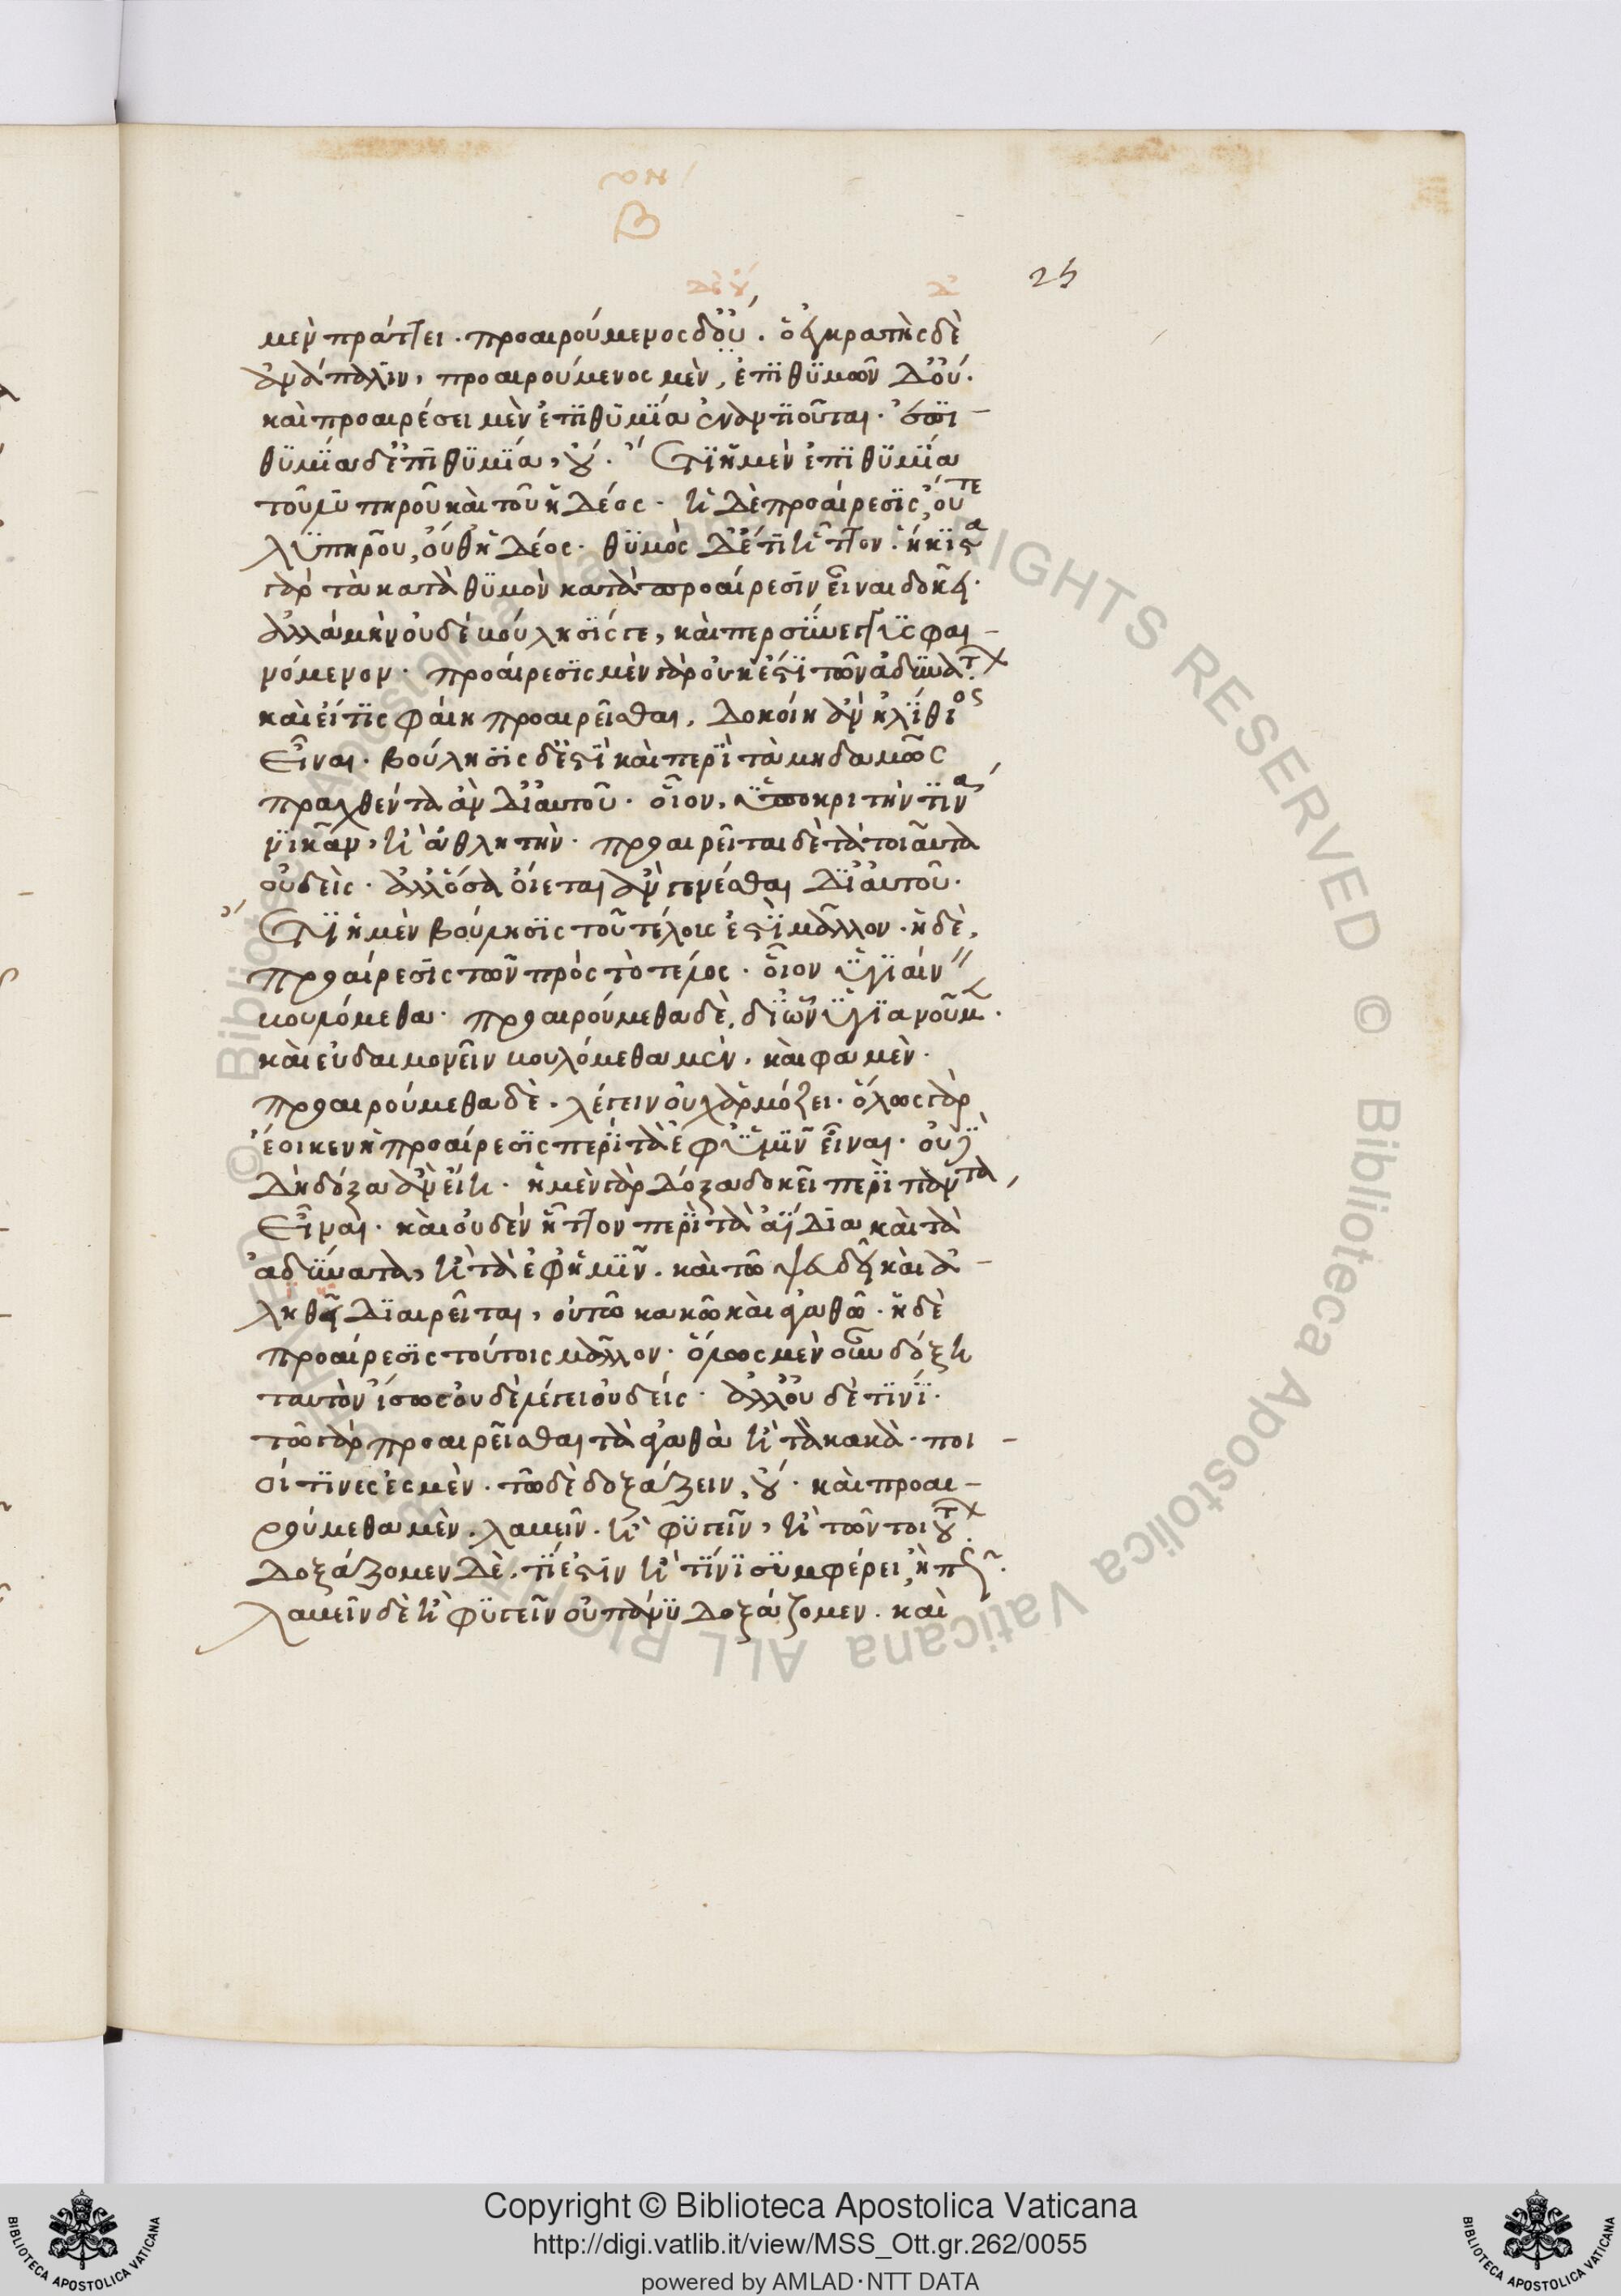 β
25
μὲν πράττει· προαιρούμενος δ' οὔ. ὁ ἐγκρατὴς δὲ
ἀνάπαλιν, προαιρούμενος μὲν, ἐπιθυμῶν δ' οὔ.
καὶ προαιρέσει μὲν ἐπιθυμία ἐναντιοῦται· ἐπι-
θυμία δ' ἐπιθυμία, οὔ. ἔτι ἡ μὲν ἐπιθυμία
τοῦ λυπηροῦ καὶ τοῦ ἡδέος· ἡ δὲ προαίρεσις, οὔτε
λυπηροῦ, οὔθ' ἡδέος· θυμὸς δ' ἔτι ἧττον· ἥκιστα
γὰρ τὰ κατὰ θυμὸν κατὰ προαίρεσιν εἶναι δοκεῖ·
ἀλλὰ μὴν οὐδὲ βούλησίς γε, καίπερ σύνεγγυς φαι-
νόμενον· προαίρεσις μὲν γὰρ οὐκ ἔστι τῶν ἀδυνάτων.
καὶ εἴ τις φαίη προαιρεῖσθαι, δοκοίη ἂν ἠλίθιος
εἶναι. βούλησις δ' ἐστὶ καὶ περὶ τὰ μηδαμῶς
πραχθέντα ἂν δι' αὐτοῦ· οἷον, ὑποκριτήν τινα
νικᾶν, ἢ ἀθλητὴν· προαιρεῖται δὲ τὰ τοιαῦτα
οὐδεὶς· ἀλλ' ὅσα οἴεται ἂν γενέσθαι δι' αὐτοῦ.
ἔτι ἡ μὲν βούλησις τοῦ τέλους ἐστὶ μᾶλλον· ἡ δὲ,
προαίρεσις τῶν πρὸς τὸ τέλος· οἷον ὑγιαίνειν
βουλόμεθα· προαιρούμεθα δὲ, δι' ὧν ὑγιανοῦμεν.
καὶ εὐδαιμονεῖν βουλόμεθα μὲν. καὶ φαμὲν.
προαιρούμεθα δὲ. λέγειν οὐχ ἁρμόζει· ὅλως γὰρ
ἔοικεν ἡ προαίρεσις περὶ τὰ ἐφ' ἡμῖν εἶναι. οὐδὲ
δὴ δόξα ἂν εἴη. ἡ μὲν γὰρ δόξα δοκεῖ περὶ πάντα,
εἶναι. καὶ οὐδὲν ἧττον περὶ τὰ ἀΐδια καὶ τὰ
ἀδύνατα, ἢ τὰ ἐφ' ἡμῖν. καὶ τῶ ψευδεῖ καὶ ἀ-
ληθεῖ διαιρεῖται, οὐ τῶ κακῶ καὶ ἀγαθῶ. ἡ δὲ
προαίρεσις τούτοις μᾶλλον. ὅλως μὲν οὖν δόξη
ταυτὸν ἴσως οὐδὲ λέγει οὐδείς· ἀλλ' οὐδὲ τινί.
τῶ γὰρ προαιρεῖσθαι τὰ ἀγαθὰ ἢ τὰ κακὰ. ποι-
οί τινες ἐσμὲν. τῶ δὲ δοξάζειν, οὔ. καὶ προαι-
ρούμεθα μὲν. λαβεῖν. ἢ φυγεῖν, ἢ τῶν τοιούτων.
δοξάζομεν δὲ. τί ἐστιν ἢ τίνι συμφέρει, ἢ πῶς.
λαβεῖν δὲ ἢ φυγεῖν οὐ πάνυ δοξάζομεν. καὶ
© Biblioteca Apostolica Vaticana ALL RIGHTS RESERVED
BIBLIOTECA APOSTOLICA VATICANA
Copyright © Biblioteca Apostolica Vaticana
http://digi.vatlib.it/view/MSS_Ott.gr.262/0055
powered by AMLAD·NTT DATA
BIBLIOTECA APOSTOLICA VATICANA